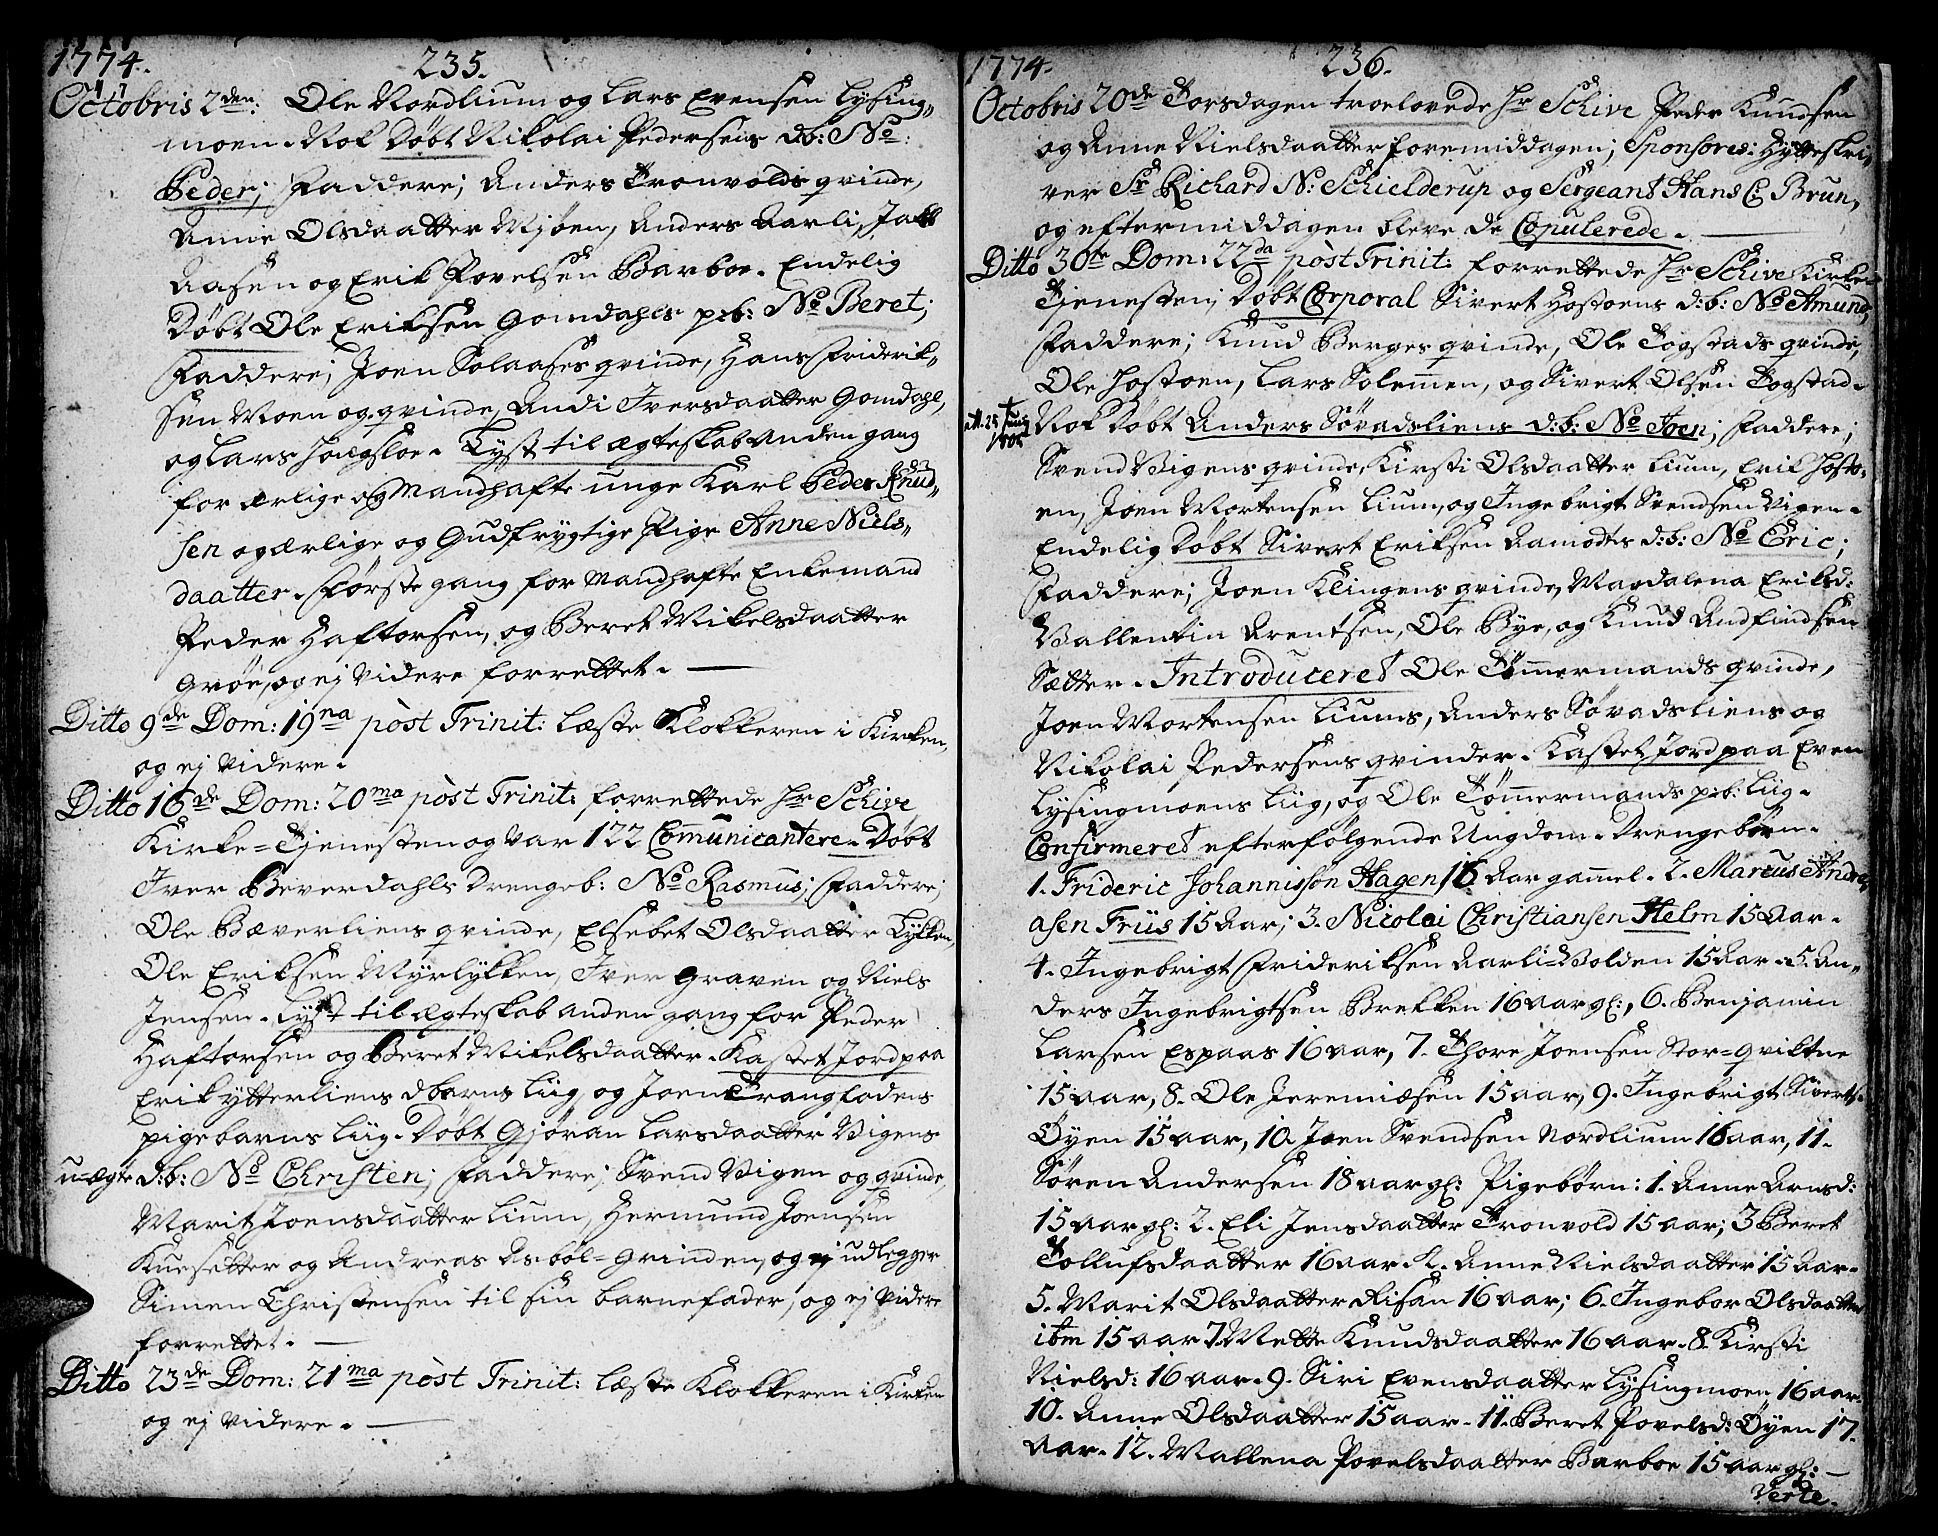 1774. 235.
Octobris 2den: Ole Nordlium og Lars Evensen Lysing„
moen. Nok Døbt Nikolai Pedersens db: No:
Peder; Faddere; Anders Tronvolds qvinde,
Anne Olsdaatter Mjøen, Anders Aarli,
Aasen og Erik Povelsen Barboe. Endelig
Døbt Ole Eriksen Gomdahls p:b: No Beret;
Faddere; Joen Solaases qvinde, Hans Friderik„
sen Moen og qvinde, Andi Iversdaatter Gomdahl,
og Lars Haugsloe. Lyst til ægteskab anden gang
for ærlige og Mandhafte unge Karl Peder Knud„
sen og ærlige og Gudfrygtige Pige Anne Niels„
daatter. Første gang for Mandhafte Enkemand
Peder Haftorsen, og Beret Mikelsdaatter
Grøe, og ej videre forrettet.
Ditto 9de Dom: 19na pòst Trinit: læste Klokkeren i Kirken,
og ej videre.
Ditto 16de Dom: 20ma pòst Trinit: forrettede Hr Schive
Kirke=Tjenesten og var 122 Com̄unicantere. Døbt
Iver Beverdahls Drengeb: No Rasmus; Faddere;
Ole Bæverliens qvinde, Elsebet Olsdaatter Lykken,
Ole Eriksen Myrlykken, Iver Graven og Niels
Jensen. Lyst til ægteskab anden gang for Peder
Haftorsen og Beret Mikelsdaatter. Kastet Jord paa
Erik Ytterliens dbarns Liig, og Joen Trangfodens
pigebarns Liig. Døbt Gjøran Larsdaatter Vigens
u-ægte d:b: No Christen; Faddere; Svend Vigen og qvinde,
Marit Joensdaatter Lium, Hermund Joensen
Kuesetter og Andreas Asböl=Grinden, og ej udlegger
Simen Christensen til sin barnefader, og ej videre
forrettet.
Ditto 23de Dom: 21ma pòst Trinit: læste Klokkeren i Kirken
og ej videre.
1774. 236.
Octobris 20de Torsdagen troelovede Hr Schive Peder Knudsen
og Anne Nielsdaatter formiddagen; Sponsores: Hytteskri„
ver Sr Richard N: Schielderup og Sergeant Hans C: Brun,
og eftermiddagen bleve de Copulerede.
Ditto 30te Dom: 22da pòst Trinit: forrettede Hr Schive Kirke
Tjenesten; Døbt Corporal Sivert Hostoens d:b: No Amund,
Faddere; Knud Berges qvinde, Ole Togstads qvinde,
Ole Hostoen, Lars Solem̄en, og Sivert Olsen Togstad.
Nok Døbt Anders Søvadsliens d:b: No Joen; Faddere;
Svend Vigens qvinde, Kirsti Olsdaatter Lium, Erik Hosto„
en, Joen Mortensen Lium, og Ingebrigt Svendsen Vigen.
Endelig Døbt Sivert Eriksen Aamodts d:b: No Eric;
Faddere; Joen Klingens qvinde, Magdalena Eriksd:
Vallentin Arentsen, Ole Bye, og Knud Andfindsen
Sætter. Introduceret Ole Tøm̄ermands qvinde,
Joen Mortensen Liums, Anders Søvadsliens og
Nikolai Pedersens qvinder. Kastet Jord paa Even
Lysingmoens Liig, og Ole Tøm̄ermands p:b: Liig.
Confirmeret efterfølgende Ungdom. Drengebørn.
1. Frideric Johannisson Hagen 16 Aar gam̄el. 2. Marcus Andre„
asen Friis 15 Aar; 3. Nicolai Christiansen Helm 15 Aar.
4. Ingebrigt Frideriksen Aarli=Volden 15 Aar. 5. An„
ders Ingebrigtsen Brekken 16 aar gl:, 6. Benjamin
Larsen Espaas 16 aar, 7. Thore Joensen Stor=Qviktne
15 aar, 8. Ole Jeremiæsen 15 aar, 9. Ingebrigt Siverts.
Öyen 15 aar, 10. Joen Svendsen Nordlium 16 aar, 11.
Søren Andersen 18 aar gl: Pigebørn: 1. Anne Arnsd:
15 aar gl: 2. Eli Jensdaatter Tronvold 15 aar; 3 Beret
Tollufsdaatter 16 aar. 4. Anne Nielsdaatter 15 aar.
5. Marit Olsdaatter Risan 16 aar; 6. Ingebor Olsdaatter
ibm 15 aar 7. Mette Knudsdaatter 16 aar. 8. Kirsti
Nielsd: 16 aar. 9. Siri Evensdaatter Lysingmoen 16 aar.
10. Anne Olsdaatter 15 aar. 11. Beret Povelsd: Öyen 17.
aar. 12. Mallena Povelsdaatter Barboe 15 aar gl:
Verte.